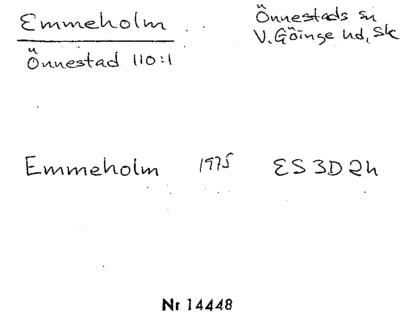 Emmeholm
Önnestad 110:1
Önnestads sn
V. Göinge hd, Sk
Emmeholm 1975 ES 3D 2h
Nr 14448